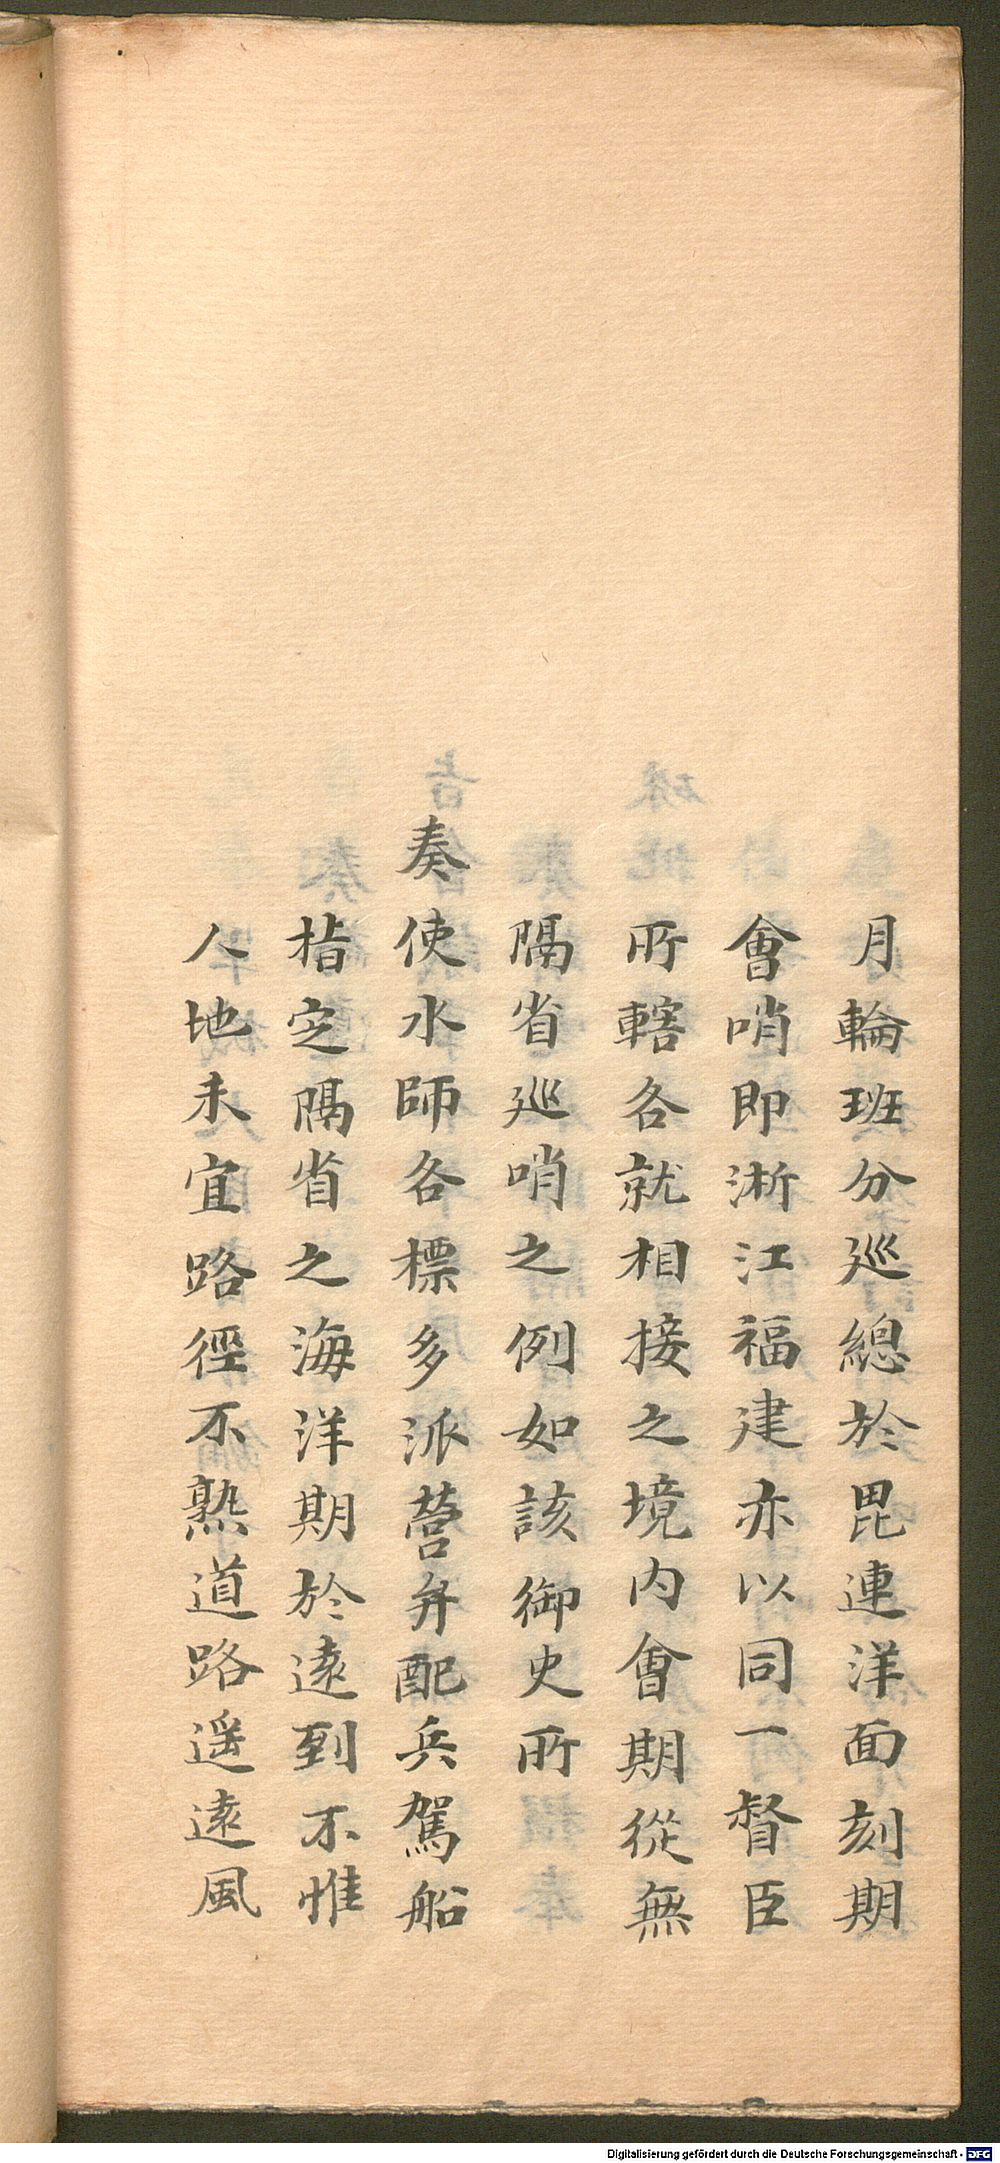 月輪班分巡總於毘連洋面刻期
會哨即淅江福建亦以同一督臣
所轄各就相接之境内會期從無
隔省巡哨之例如該御史所
奏使水師各標多派營弁配兵駕船
指定隔省之海洋期於遠到不惟
人地未宜路徑不熟道路遥遠風
Digitalisierung gefördert durch die Deutsche Forschungsgemeinschaft - DFG